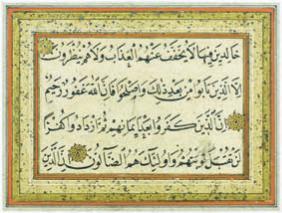 خَالِدِينَ فِيهَا لَا يُخَفَّفُ عَنْهُمُ الْعَذَابُ وَلَا هُمْ يُنْظَرُونَ
اِلَّا الَّذِينَ تَابُوا مِنْ بَعْدِ ذٰلِكَ وَاَصْلَحُوا فَاِنَّ اللّٰهَ غَفُورٌ رَحِيمٌ
اِنَّ الَّذِينَ كَفَرُوا بَعْدَ اِيمَانِهِمْ ثُمَّ ازْدَادُوا كُفْرًا
لَنْ تُقْبَلَ تَوْبَتُهُمْ وَاُولٰئِكَ هُمُ الضَّالُّونَ اِنَّ الَّذِينَ